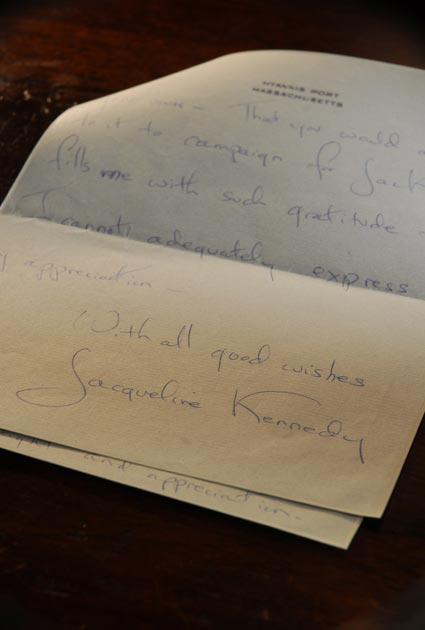 HYANNIS PORT
MASSACHUSETTS
That you would
it to campaign for Jack
fills me with such gratitude -
I cannot adequately express
appreciation -
With all good wishes
Jacqueline Kennedy
and appreciation.